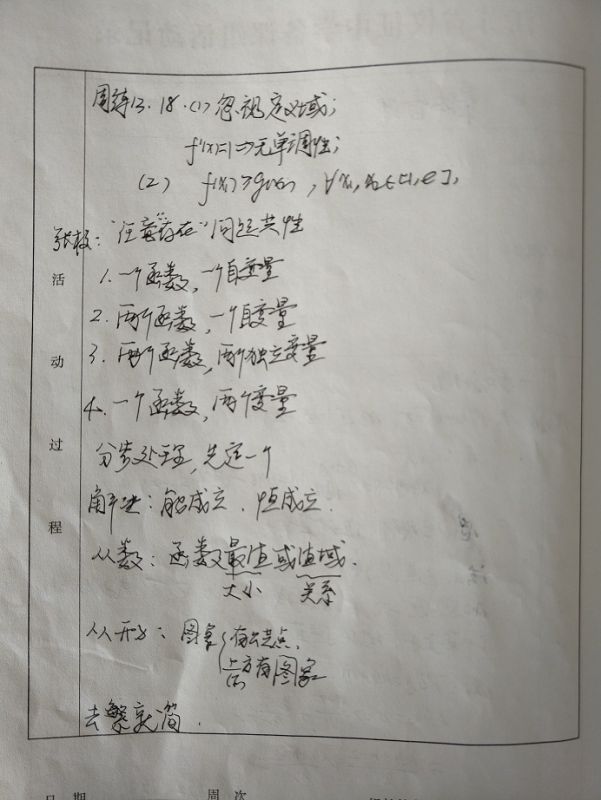 周练13. 18.(1)忽视定义域;
f'(x)=1⇒无单调性;
(2) f(x₁)≥g(x₂), ∀x₁, x₂∈[1,e],
"任意""存在"问题共性
1. 一个函数,一个自变量
2. 两个函数,一个自变量
3. 两个函数,两个独立变量
4. 一个函数,两个变量
分步处理,先定一个
解决:能成立、恒成立.
从数:函数最值或值域.
大小 关系
从形:图象 有公共点.
上方有图象
下
去繁就简.
活动过程
日 期 周 次